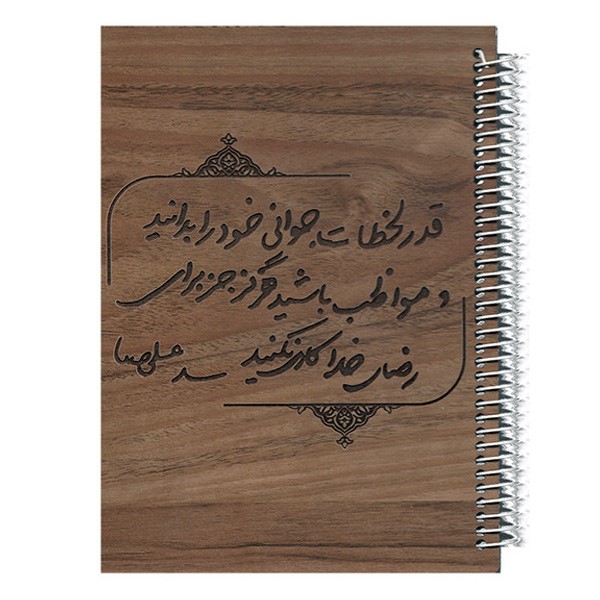 قدر لحظات جوانی خود را بدانید
و مواظب باشید هرگز جز برای
رضای خدا کاری نکنید